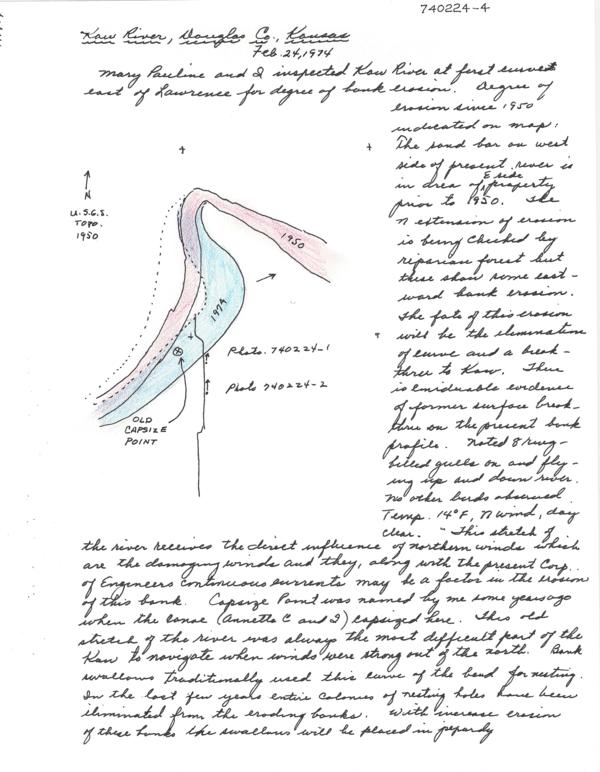 740224-4
Kaw River, Douglas Co., Kansas
Feb. 24, 1974
Mary Pauline and I inspected Kaw River at first curve
east of Lawrence for degree of bank erosion. Degree of
erosion since 1950
indicated on map.
The sand bar on west
side of present river is
in area of E side property
prior to 1950. The
N extension of erosion
is being checked by
riparian forest but
these show some east-
ward bank erosion.
The fate of this erosion
will be the elimination
of curve and a break-
thru to Kaw. There
is evidence
of former surface break-
thru on the present bank
profile. Noted 8 ring-
billed gulls on and fly-
ing up and down river.
No other birds observed
Temp. 14°F, N wind, day
clear. "This stretch of
the river receives the direct influence of northern winds which
are the damaging winds and they, along with the present Corp.
of Engineers continuous currents may be a factor in the erosion
of this bank. Capsize Point was named by me some years ago
when the canoe (Annette C and I) capsized here. This old
stretch of the river was always the most difficult part of the
Kaw to navigate when winds were strong out of the north. Bank
swallows traditionally used this curve of the bend for nesting.
In the last few years entire colonies of nesting holes have been
eliminated from the eroding banks. With increase erosion
of these banks the swallows will be placed in jepardy
N
U.S.G.S.
TOPO.
1950
1950
1974
Photo. 740224-1
Photo 740224-2
OLD
CAPSIZE
POINT